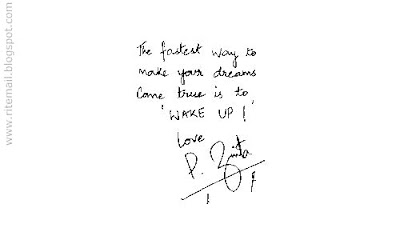 www.ritemail.blogspot.com
The fastest way to
make your dreams
Come true is to
'WAKE UP!'
Love
P. Zinta